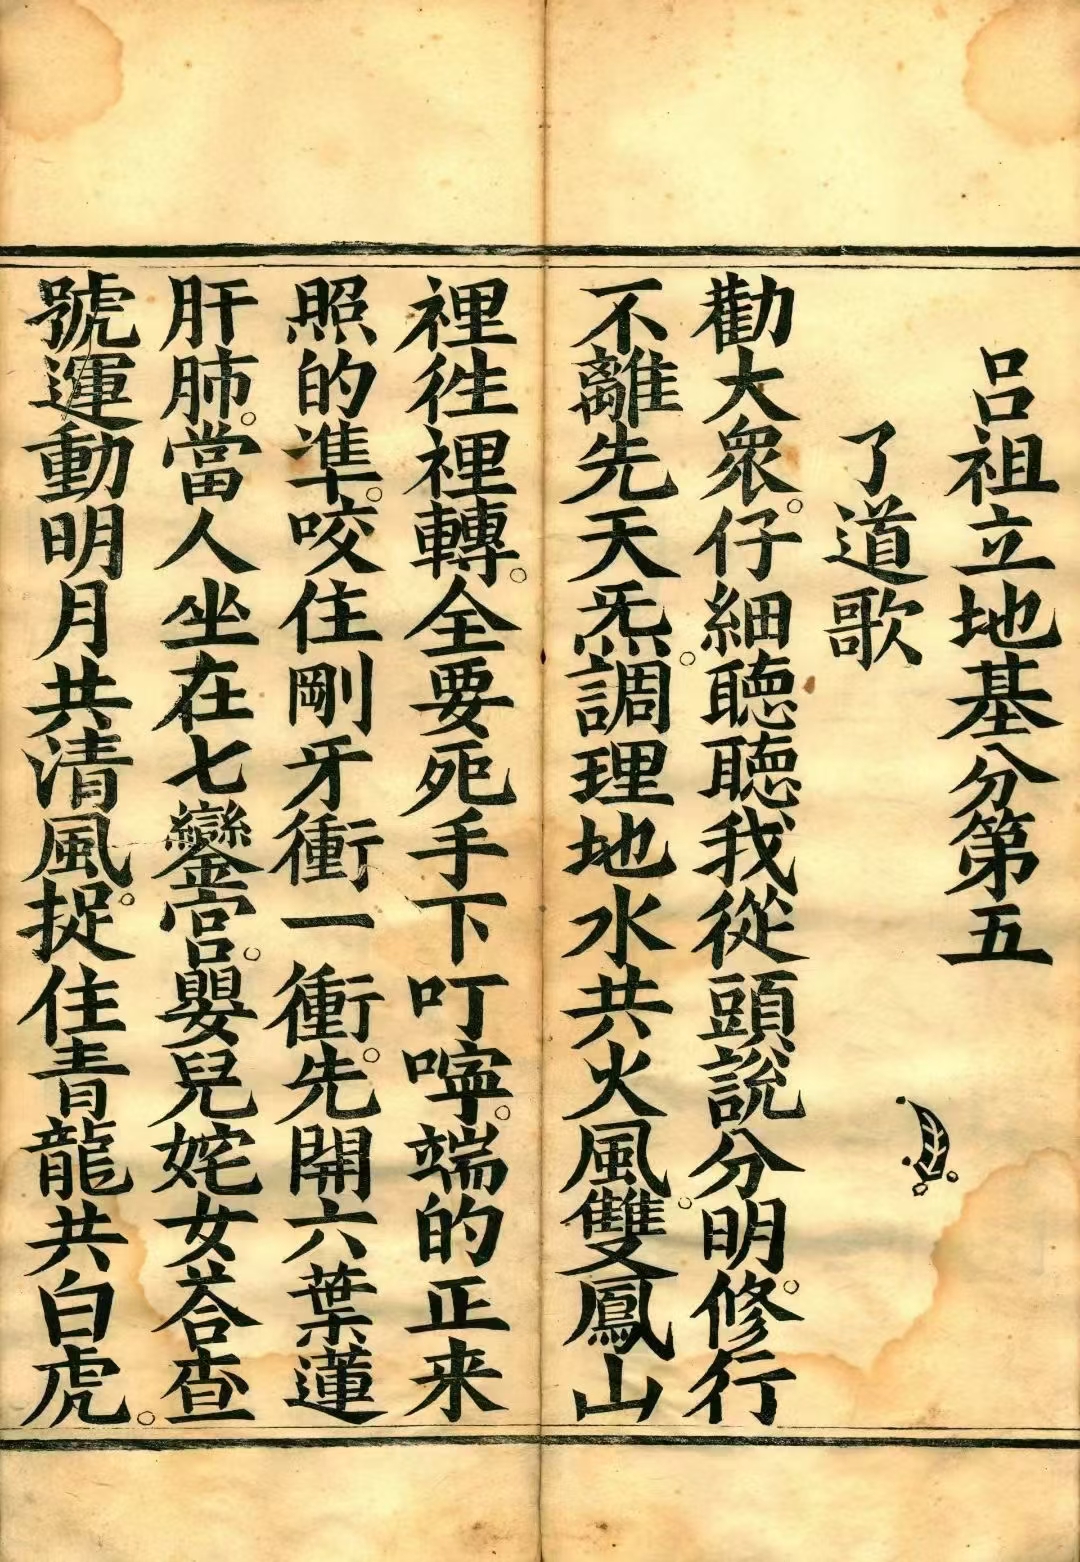 呂祖立地基分第五
了道歌
勸大衆。仔細聽聽我從頭說分明。修行
不離先天炁。調理地水共火風。雙鳳山
裡徃裡轉。全要死手下叮嚀。端的正来
照的準。咬住剛牙衝一衝。先開六葉蓮
肝肺。當人坐在七鑾宫。嬰兒姹女荅查
號運動明月共清風。捉住青龍共白虎。